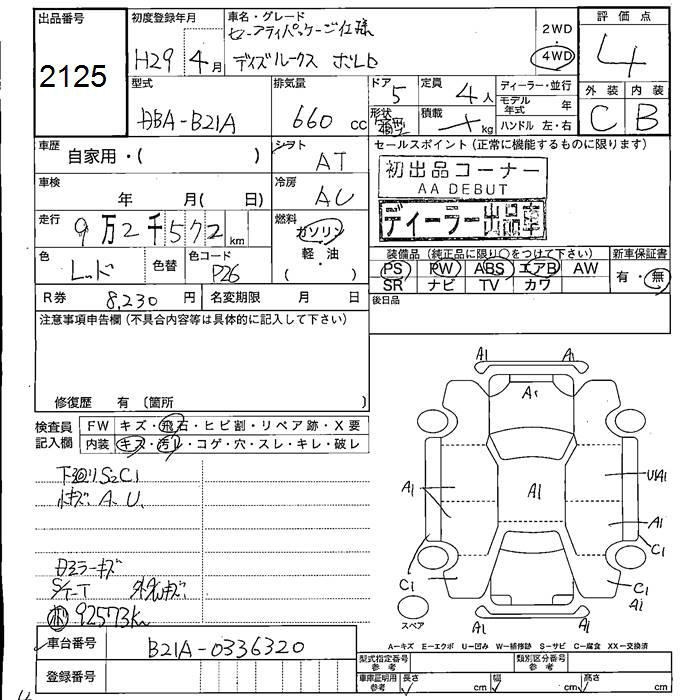 出品番号
2125
初度登録年月
H29年4月
車名・グレード
セーフティパッケージ仕様
デイズルークス ボルト
2WD
4WD
評価点
4
外装 内装
C B
型式
DBA-B21A
排気量
660 cc
ドア
5
形状
定員
4人
積載
kg
ディーラー・並行
モデル年式 年
ハンドル 左・右
車歴
自家用・( )
シフト
AT
車検
年 月( 日)
冷房
AC
走行
9万2千572km
燃料
ガソリン
軽・油
( )
色
レッド
色替
色コード
P26
R券 8,230 円
名変期限 月 日
セールスポイント (正常に機能するものに限ります)
初出品コーナー
AA DEBUT
ディーラー出品車
装備品 (純正品に限り○をつけて下さい)
PS PW ABS エアB AW
SR ナビ TV カワ
新車保証書
有・無
後日品
注意事項申告欄 (不具合内容等は具体的に記入して下さい)
修復歴 有 〔箇所 〕
検査員記入欄
FW キズ・飛石・ヒビ割・リペア跡・X要
内装 キズ・汚レ・コゲ・穴・スレ・キレ・破レ
下回りS2C1
小キズ. A. U.
ミラーキズ
92573km
A1 A1
A1
A1 A1 U1A1
A1
C1
C1 C1
A1
A1 A1
スペア
A-キズ E-エクボ U-凹み W-補修跡 S-サビ C-腐食 XX-交換済
車台番号
B21A-0336320
登録番号
型式指定番号 参考
類別区分番号 参考
車庫証明用 参考
長さ cm
幅 cm
高さ cm